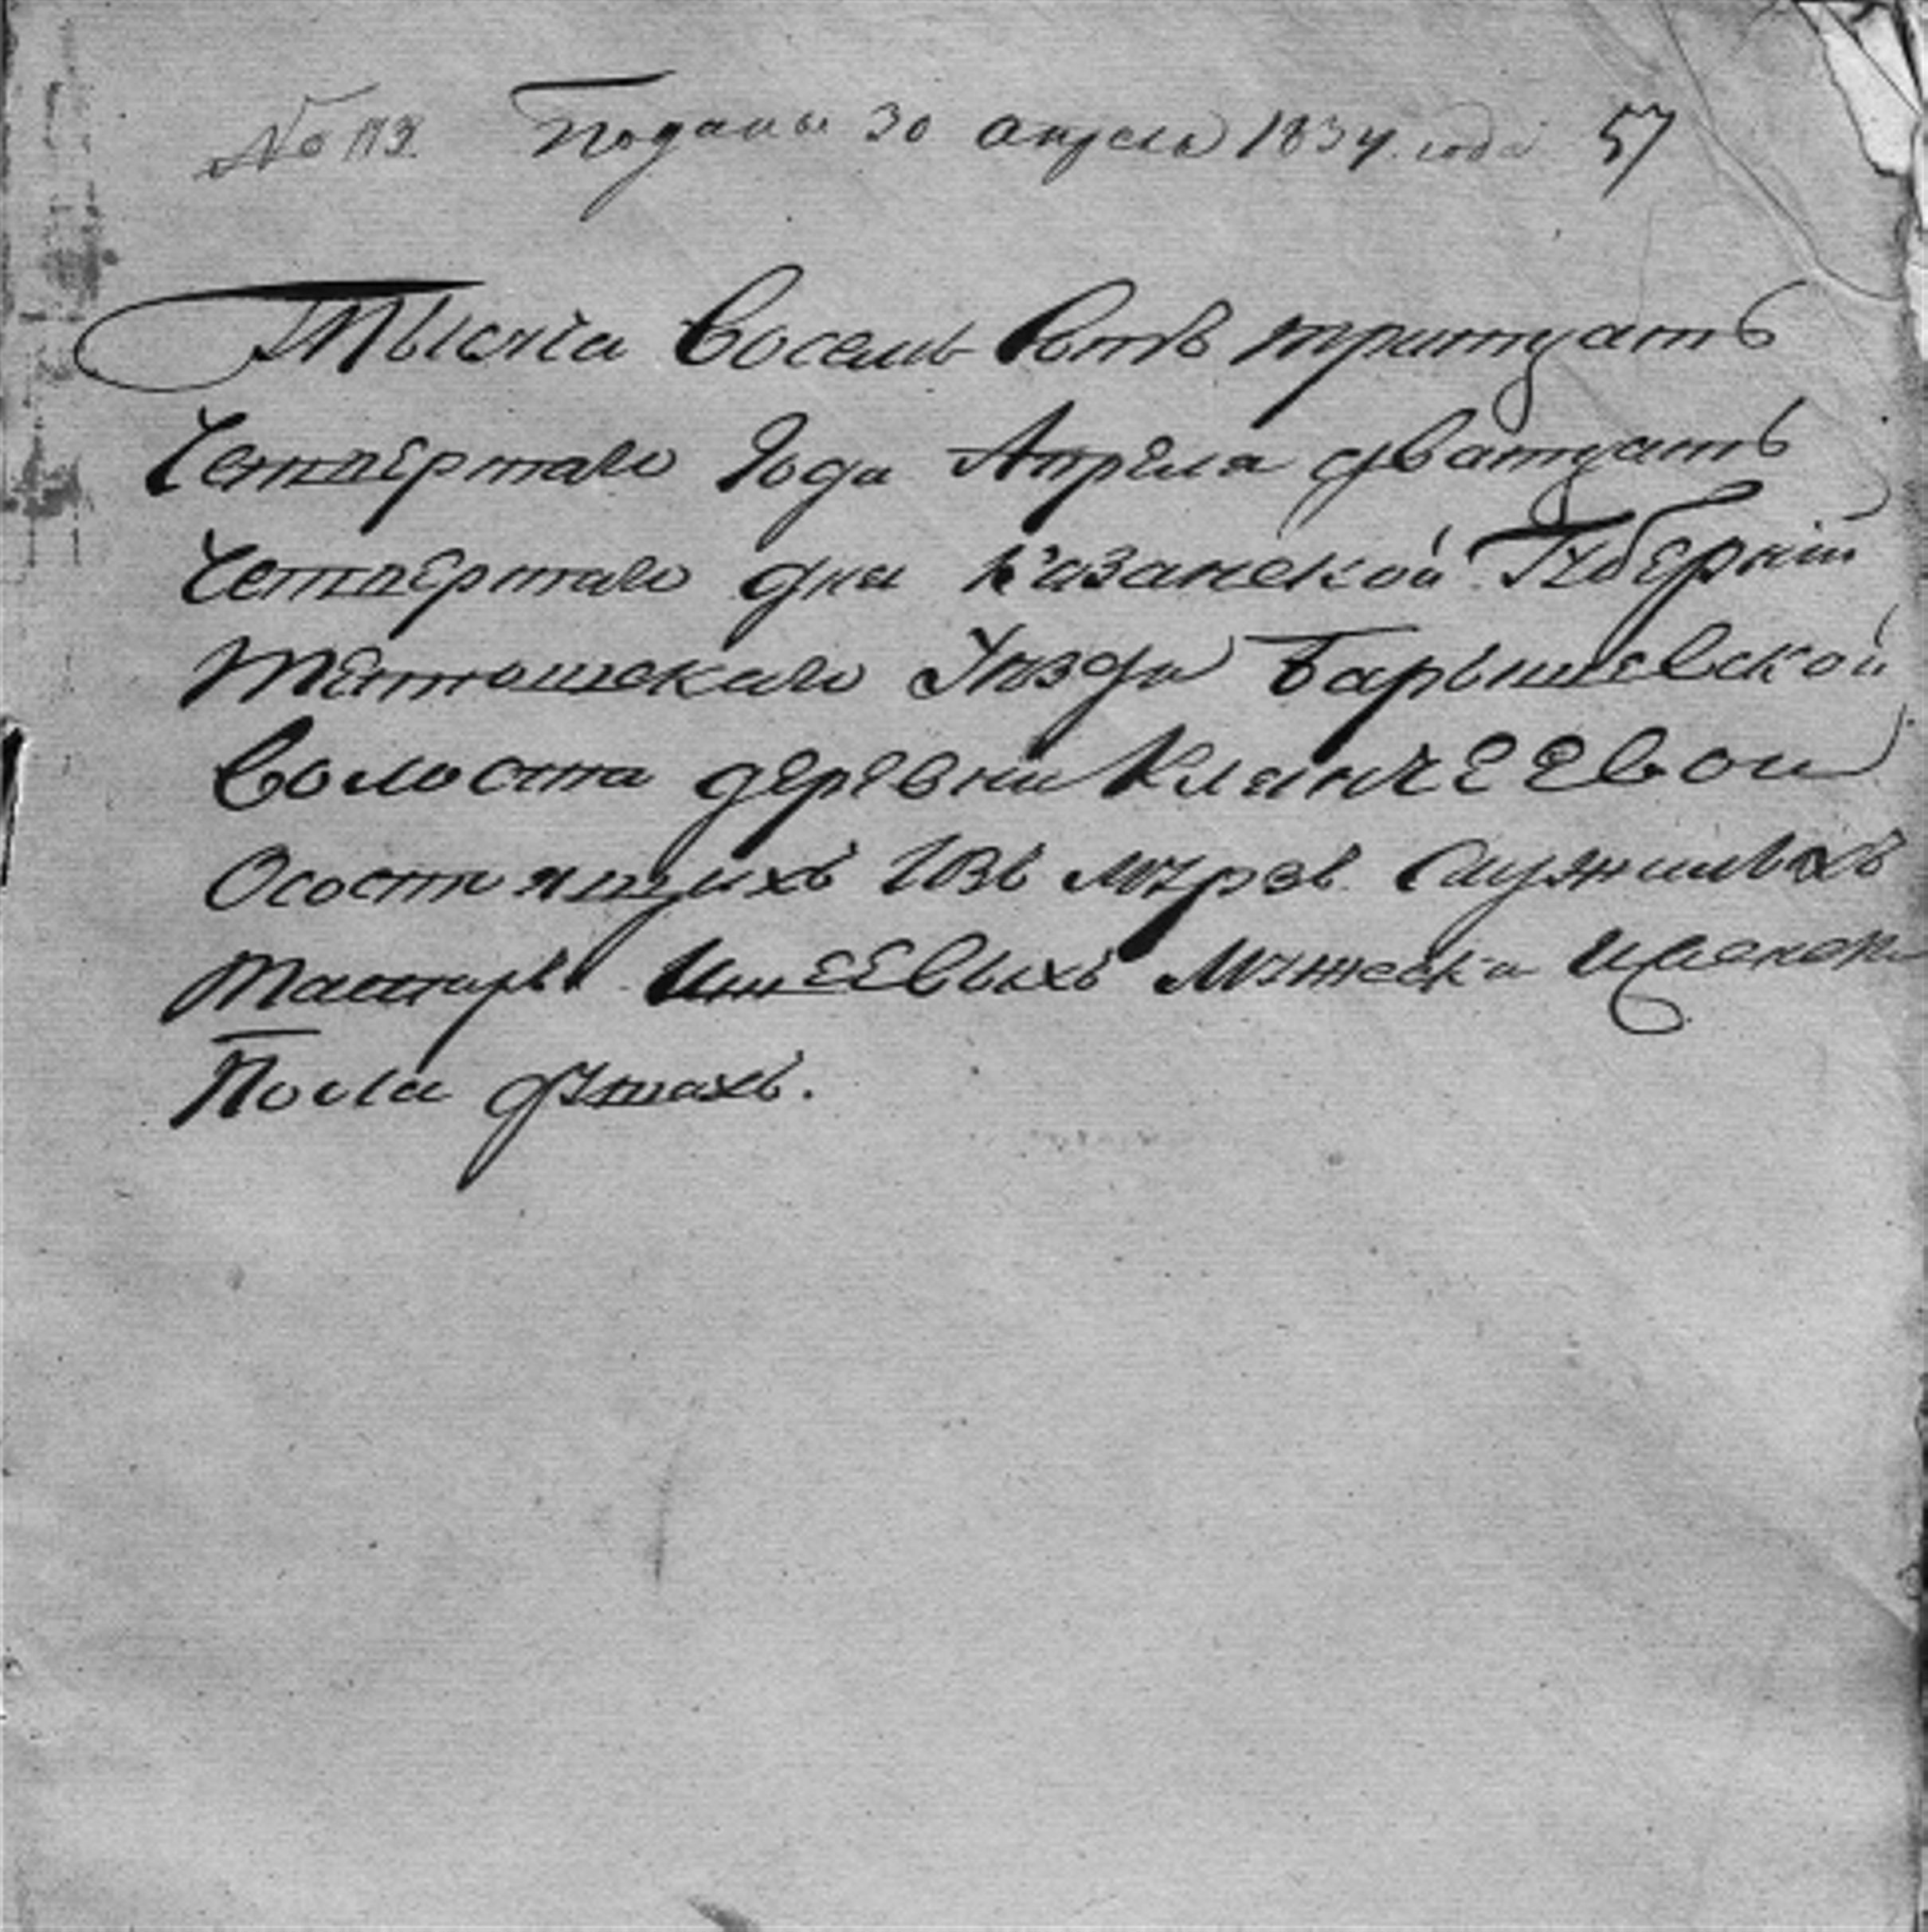 № 113 Поданы 30 апреля 1834 года 57
Тысяча восемь сотъ тритцать
Четвертаго Года Апреля дватцать
Четвертаго дня Казанской Губерніи
Тетюшскаго Уѣзда Барышевской
волости деревни Клянчеевои
Осостоящихъ изъ мурзъ служилыхъ
татаръ Ишеевыхъ Мужеска и женска
Пола душахъ.